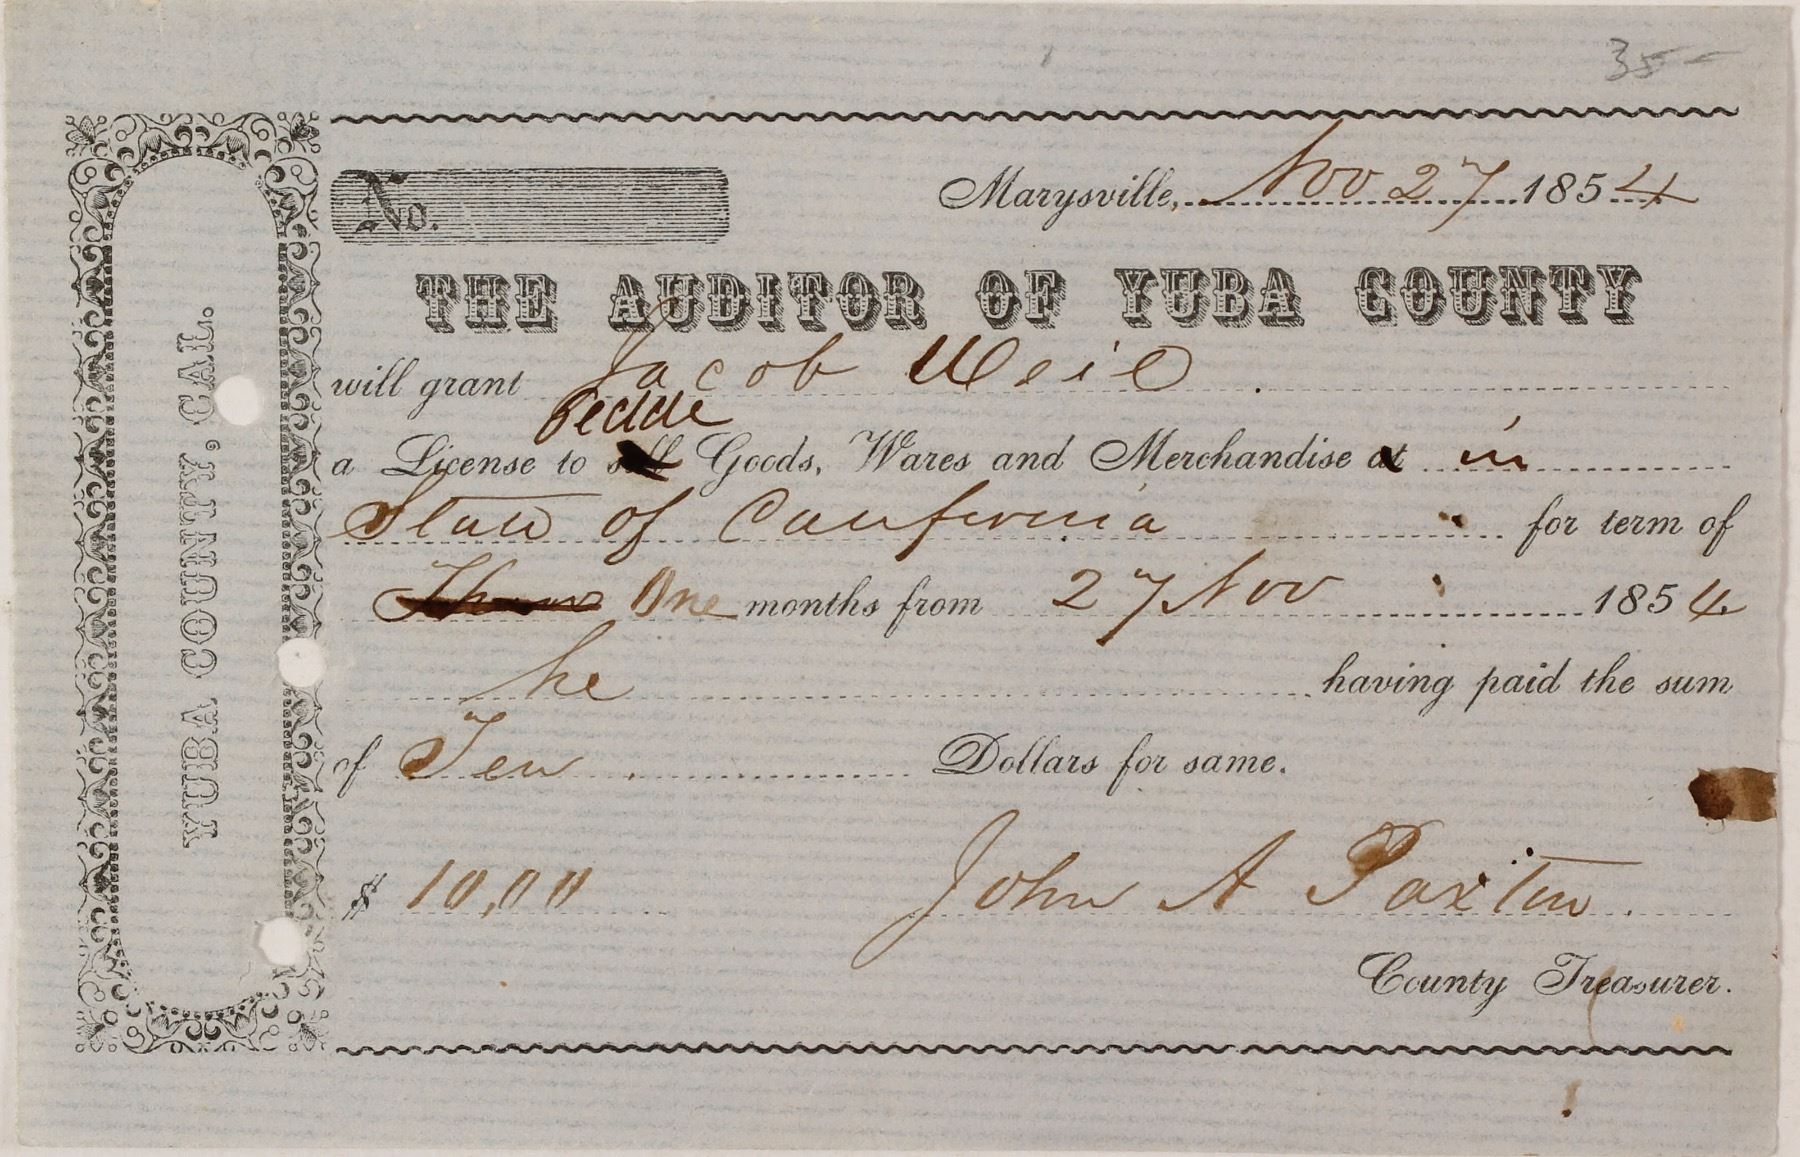 35-
YUBA COUNTY, CAL.
No.
Marysville, Nov 27 1854
THE AUDITOR OF YUBA COUNTY
will grant Jacob Weil
Peddle
a License to sell Goods, Wares and Merchandise at in
State of California for term of
Three One months from 27 Nov 1854
he having paid the sum
of Ten Dollars for same.
$ 10,00 John A Paxton
County Treasurer.